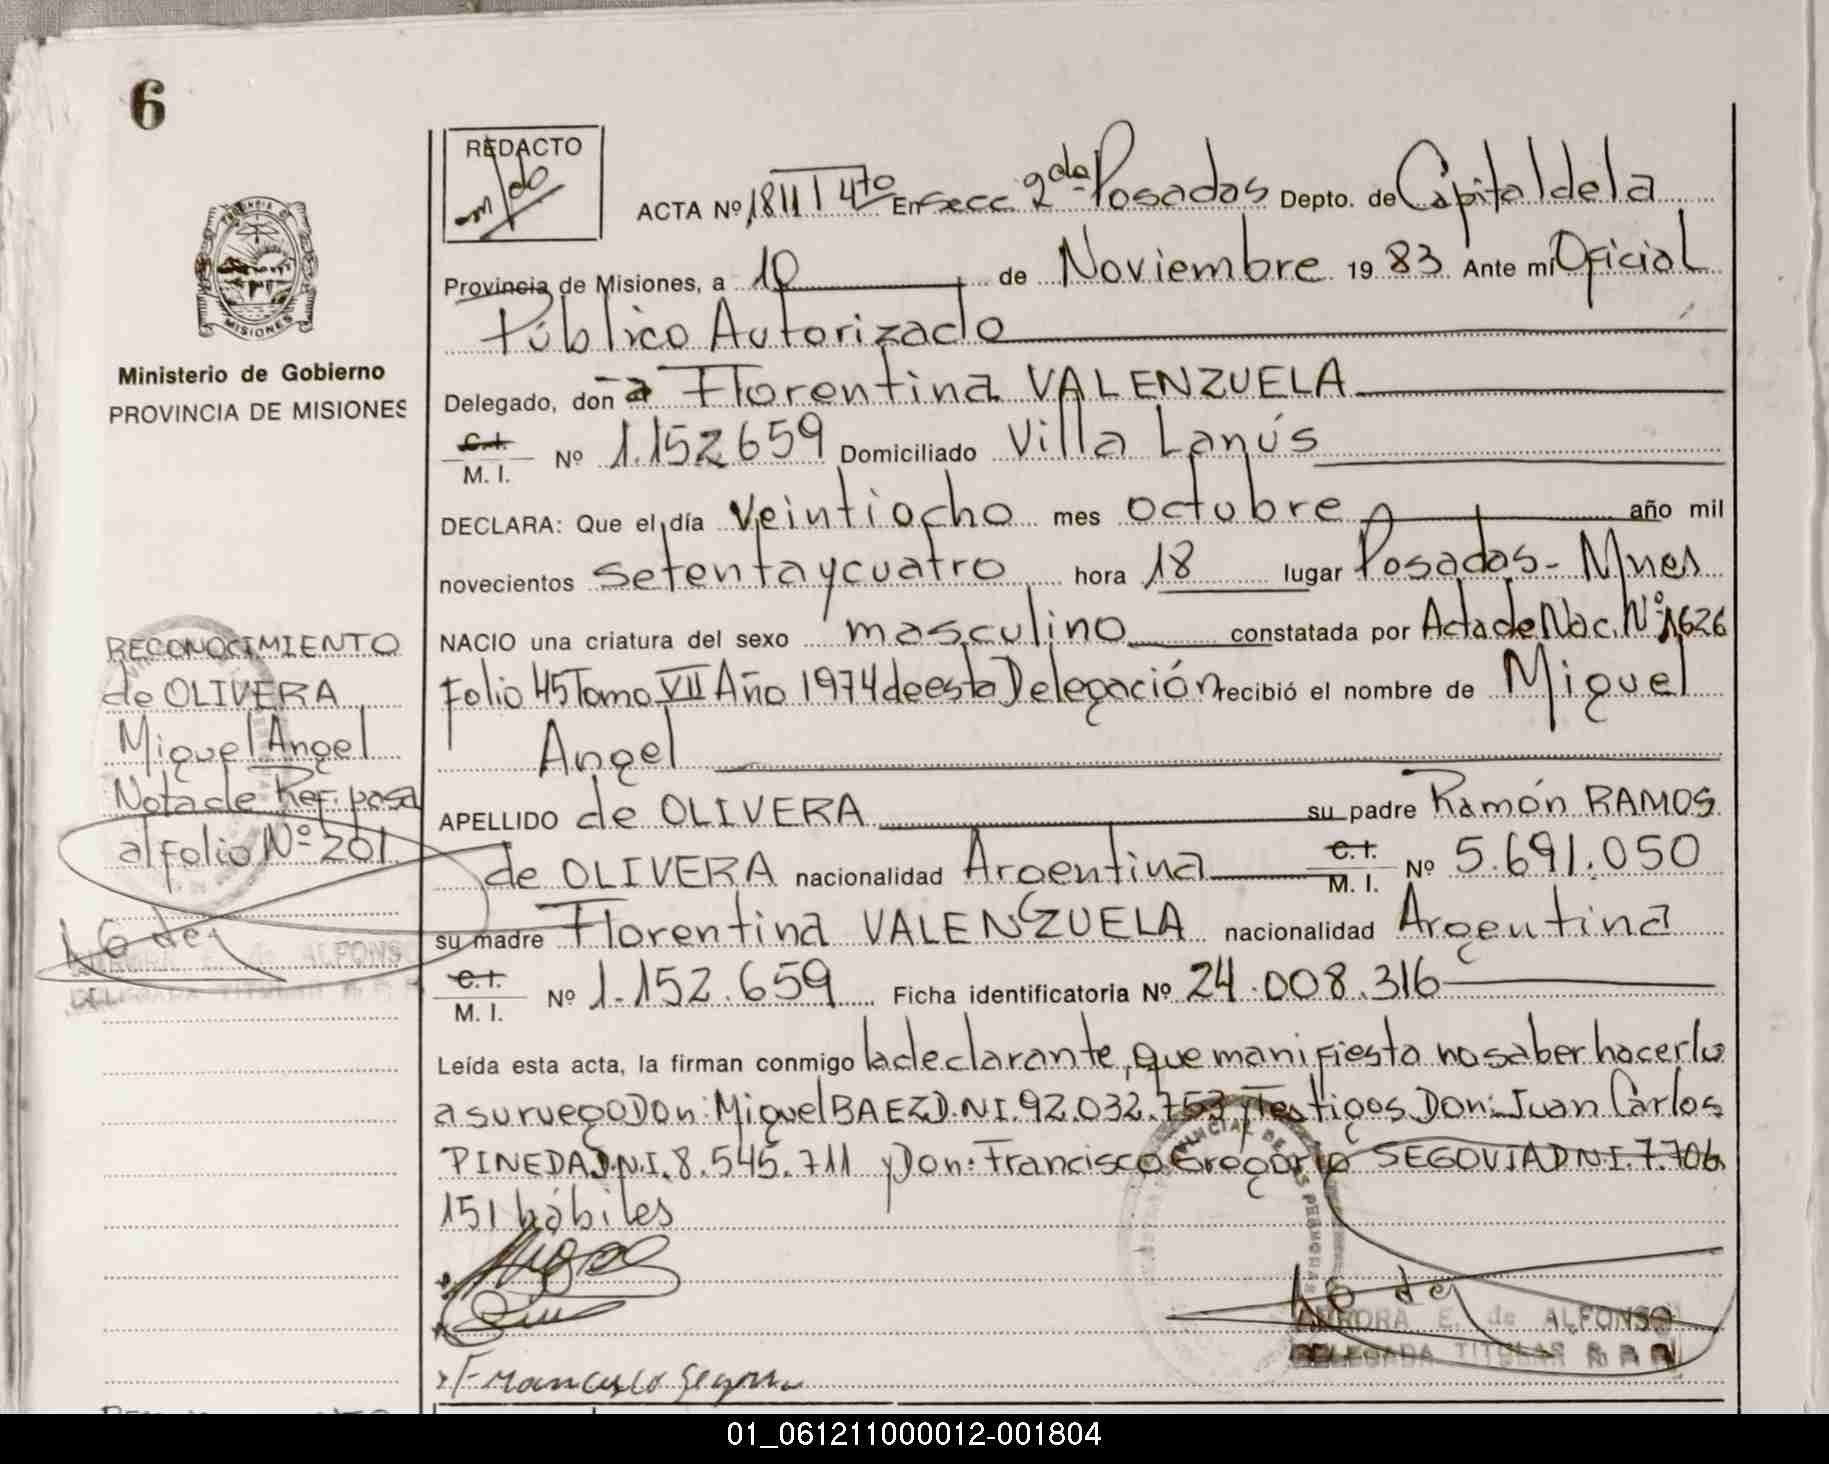 6
REDACTO
ACTA Nº 1811 T 4to En Secc. 2da Posadas Depto. de Capital de la
Provincia de Misiones, a 10 de Noviembre 1983 Ante mi Oficial
Público Autorizado
MISIONES
Ministerio de Gobierno
PROVINCIA DE MISIONES
Delegado, don a Florentina VALENZUELA
C.I.
M. I. Nº 1.152659 Domiciliado Villa Lanús
DECLARA: Que el día veintiocho mes octubre año mil
novecientos setenta y cuatro hora 18 lugar Posadas - Mnes
NACIO una criatura del sexo masculino constatada por Acta de Nac. Nº 1626
Folio 45 Tomo VII Año 1974 de esta Delegación recibió el nombre de Miguel
Angel
APELLIDO de OLIVERA su padre Ramón RAMOS
de OLIVERA nacionalidad Argentina C.I. M. I. Nº 5.691.050
su madre Florentina VALENZUELA nacionalidad Argentina
C.I.
M. I. Nº 1.152.659 Ficha identificatoria Nº 24.008.316
Leída esta acta, la firman conmigo la declarante, que manifiesta no saber hacerlo
a su ruego Don: Miguel BAEZ D.N.I. 92.032.753 y Testigos Don: Juan Carlos
PINEDA D.N.I. 8.545.711 y Don: Francisco Gregorio SEGOVIA D.N.I. 7.706
151 hábiles
Francisco Segovia
AURORA E. de ALFONSO
DELEGADA TITULAR R P P
RECONOCIMIENTO
de OLIVERA
Miguel Angel
Nota de Ref. pasa
al folio Nº 201
AURORA E. de ALFONSO
DELEGADA TITULAR R P P
01_061211000012-001804